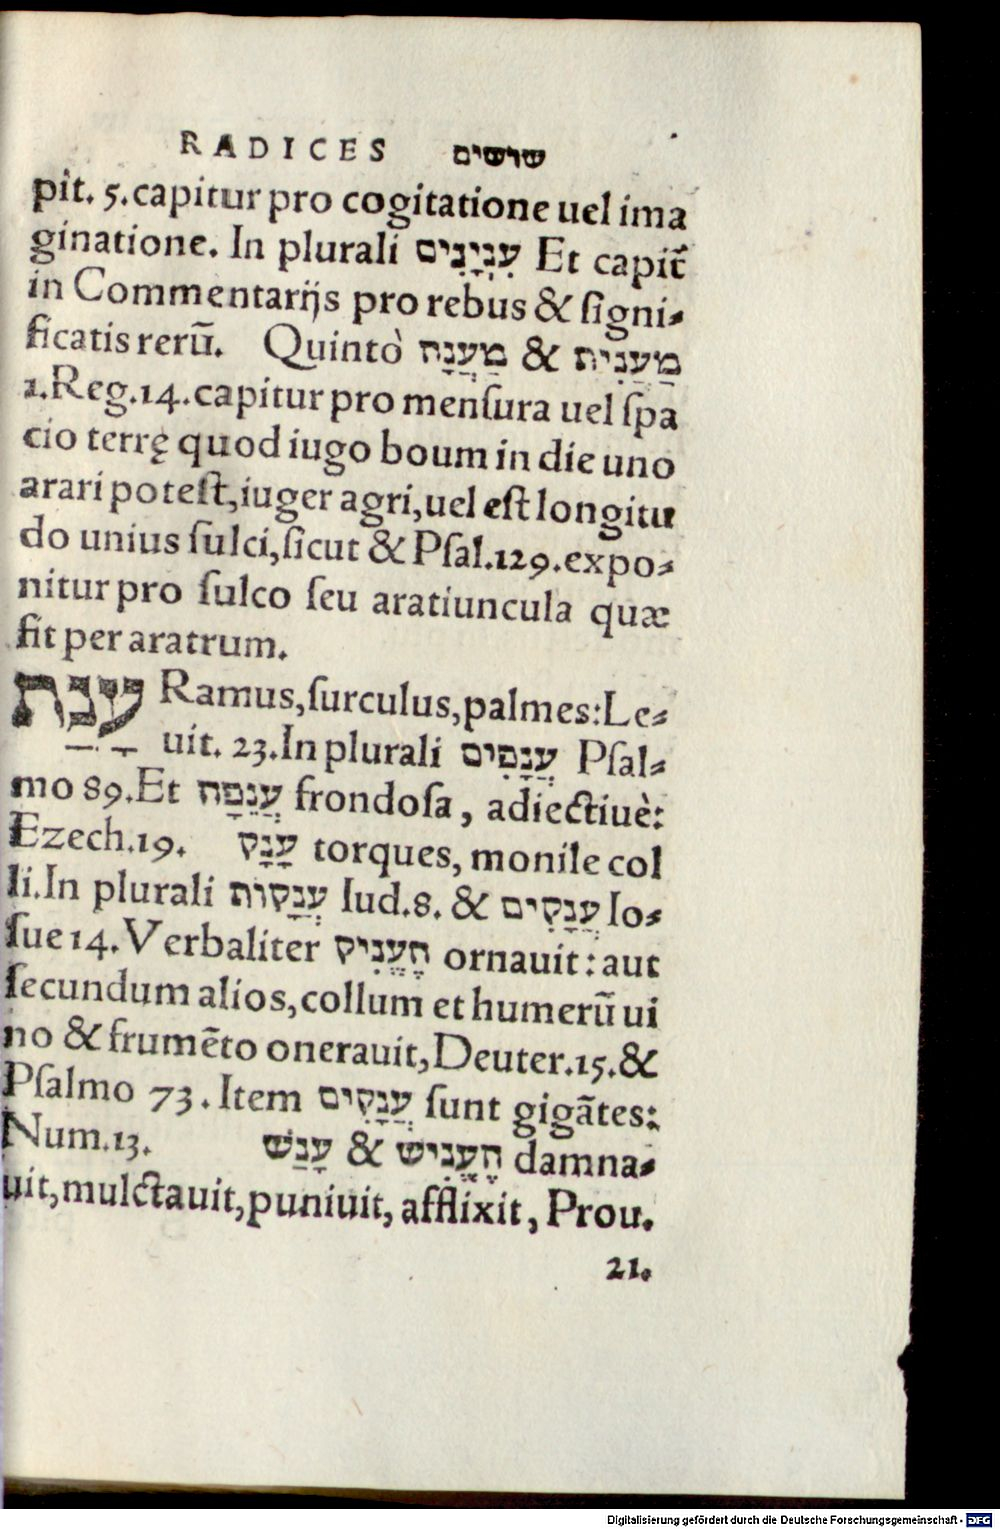 RADICES שושים
pit. 5. capitur pro cogitatione uel ima
ginatione. In plurali עִנְיָנִים Et capit᷑
in Commentarijs pro rebus & ſigni⸗
ficatis rerū. Quintò מַעֲנָה & מַעֲנִית
1. Reg. 14. capitur pro menſura uel ſpa
cio terrę quod iugo boum in die uno
arari poteſt, iuger agri, uel eſt longitu
do unius ſulci, ſicut & Pſal. 129. expo⸗
nitur pro ſulco ſeu aratiuncula quæ
fit per aratrum.
Ramus, ſurculus, palmes: Le⸗
uit. 23. In plurali עֲנָפִים Pſal⸗
mo 89. Et עֲנֵפָה frondoſa, adiectiuè:
Ezech. 19. עָנָק torques, monile col
li. In plurali עֲנָקוֹת Iud. 8. & עֲנָקִים Io⸗
ſue 14. Verbaliter הֶעֱנִיק ornauit: aut
ſecundum alios, collum et humerū ui
no & frumēto onerauit, Deuter. 15. &
Pſalmo 73. Item עֲנָקִים ſunt gigātes:
Num. 13. עָנַשׁ & הֶעֱנִישׁ damna⸗
uit, mulctauit, puniuit, afflixit, Prou.
21.
Digitalisierung gefördert durch die Deutsche Forschungsgemeinschaft - DFG